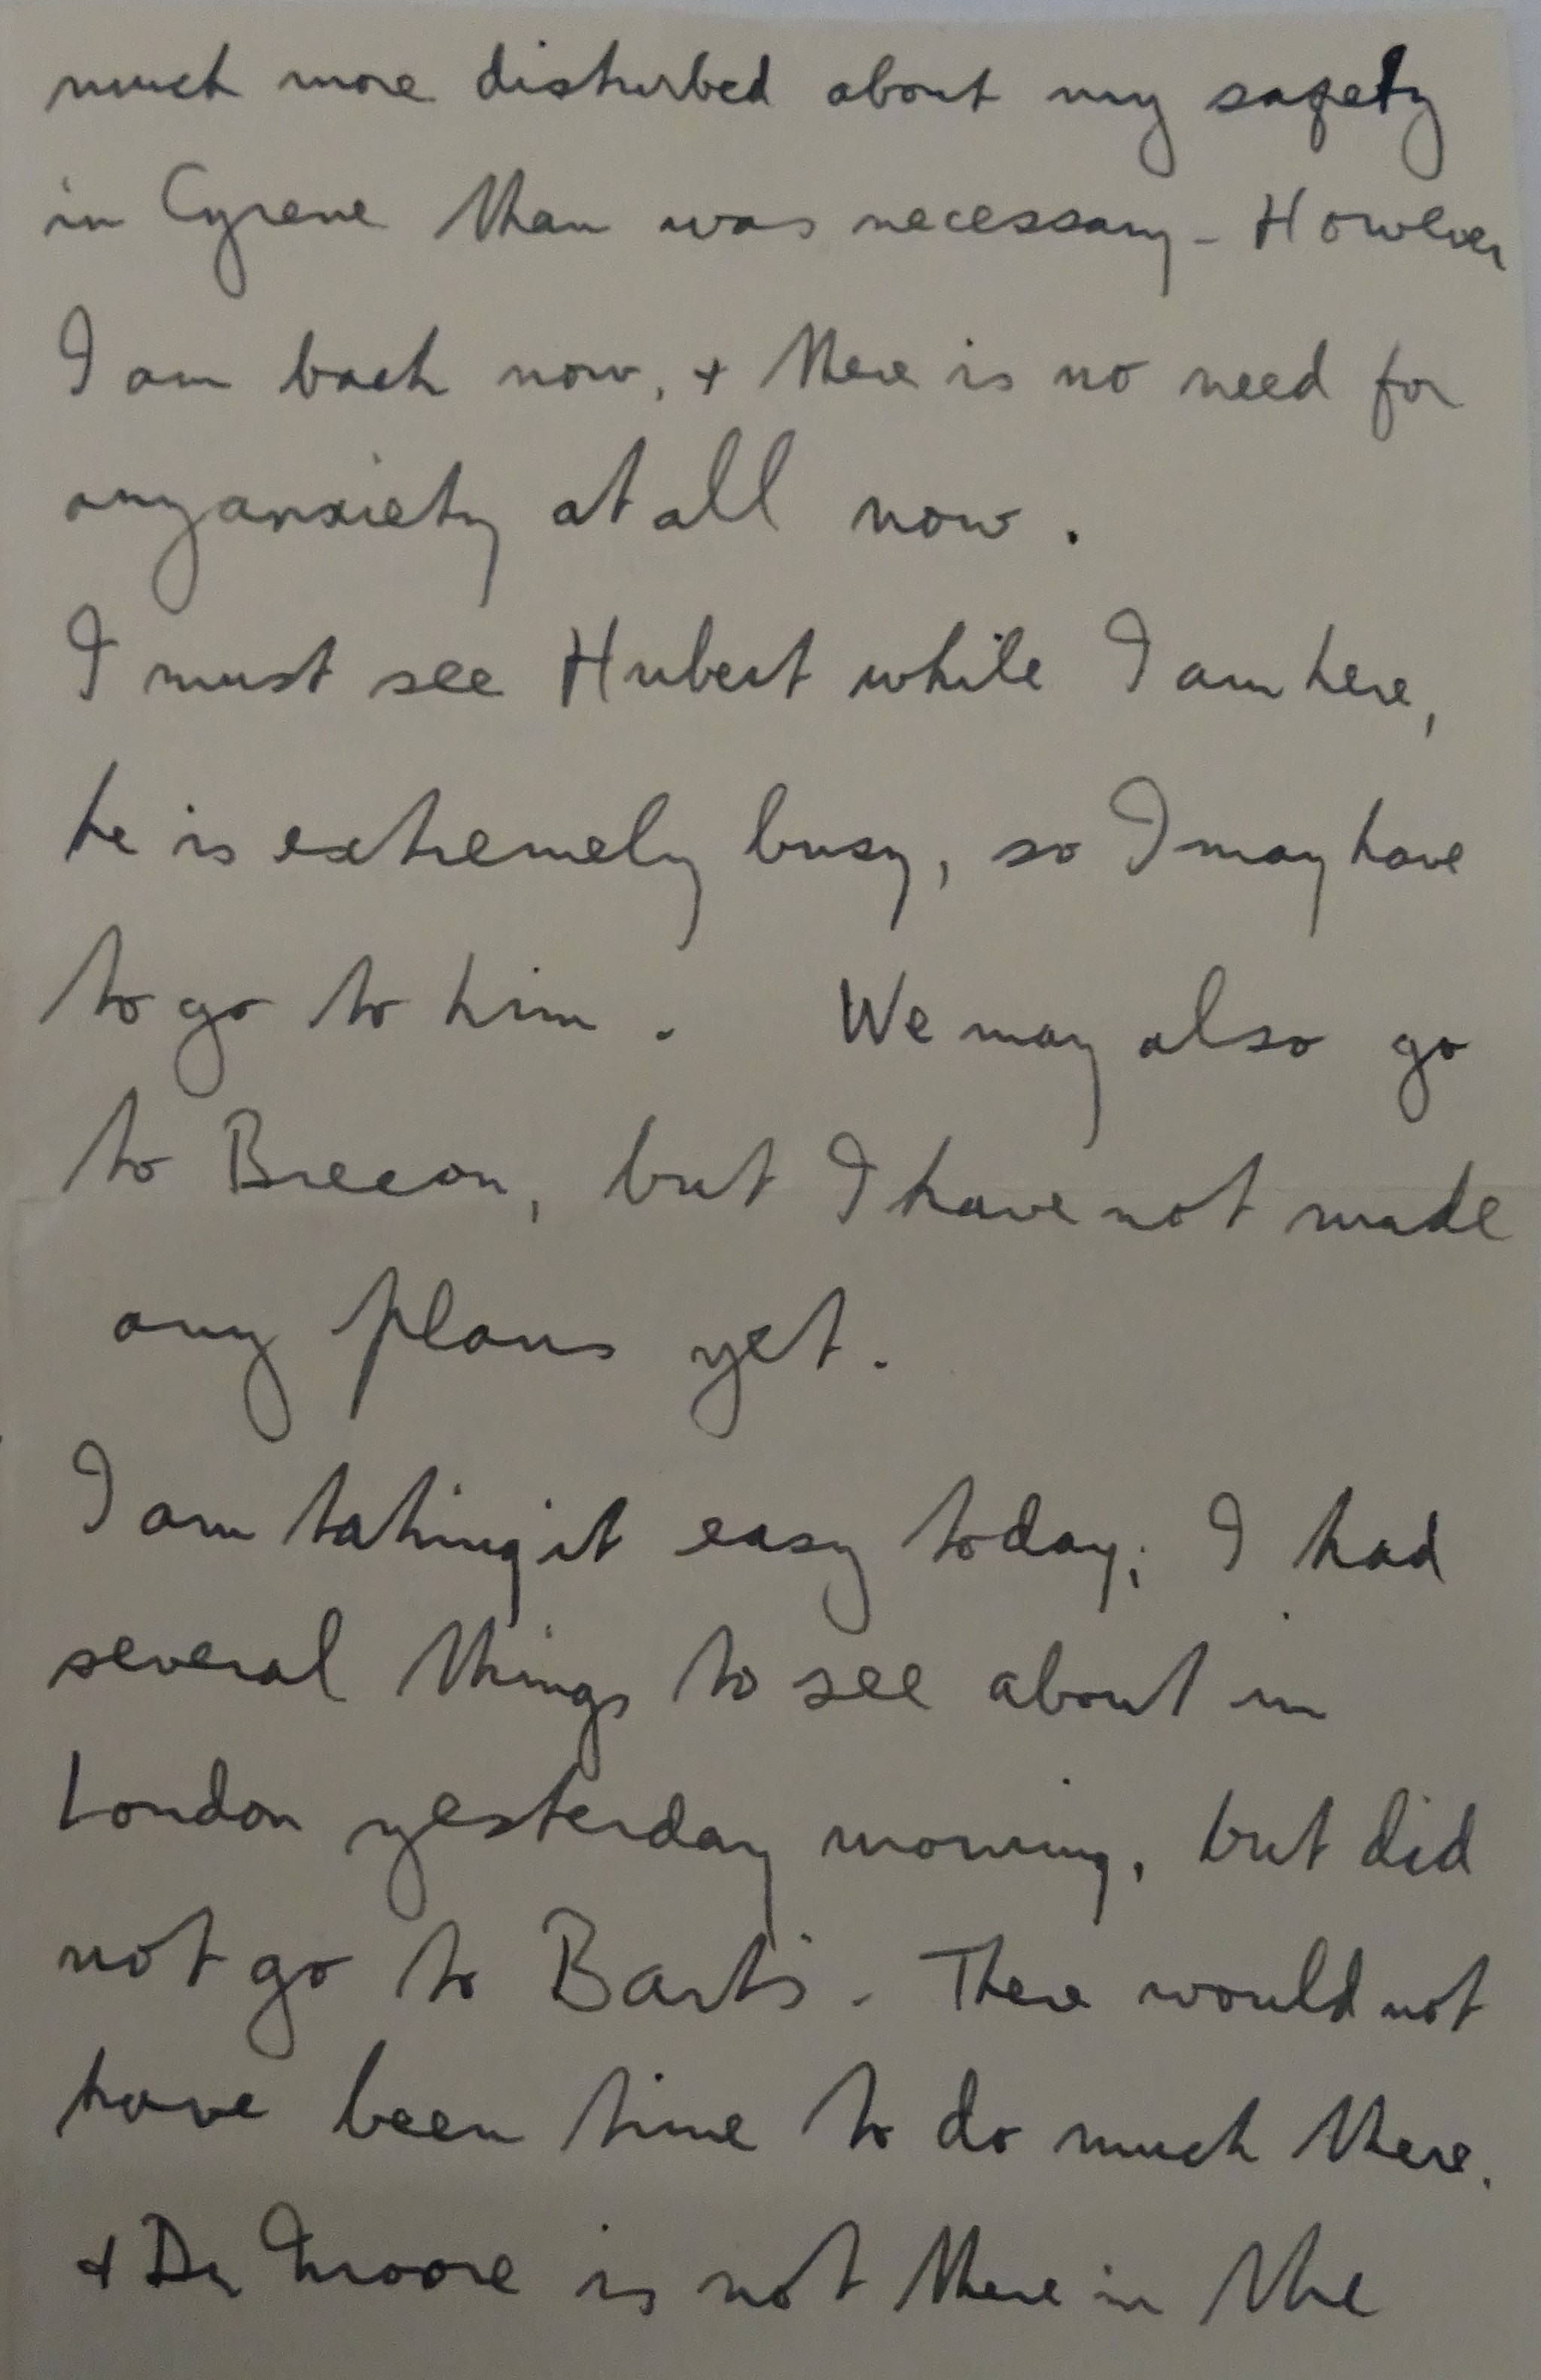 much more disturbed about my safety
in Cyrene than was necessary - However
I am back now, + there is no need for
any anxiety at all now.
I must see Hubert while I am here,
he is extremely busy, so I may have
to go to him. We may also go
to Brecon, but I have not made
any plans yet.
I am taking it easy today; I had
several things to see about in
London yesterday morning, but did
not go to Bart's. There would not
have been time to do much there.
+ Dr Moore is not there in the